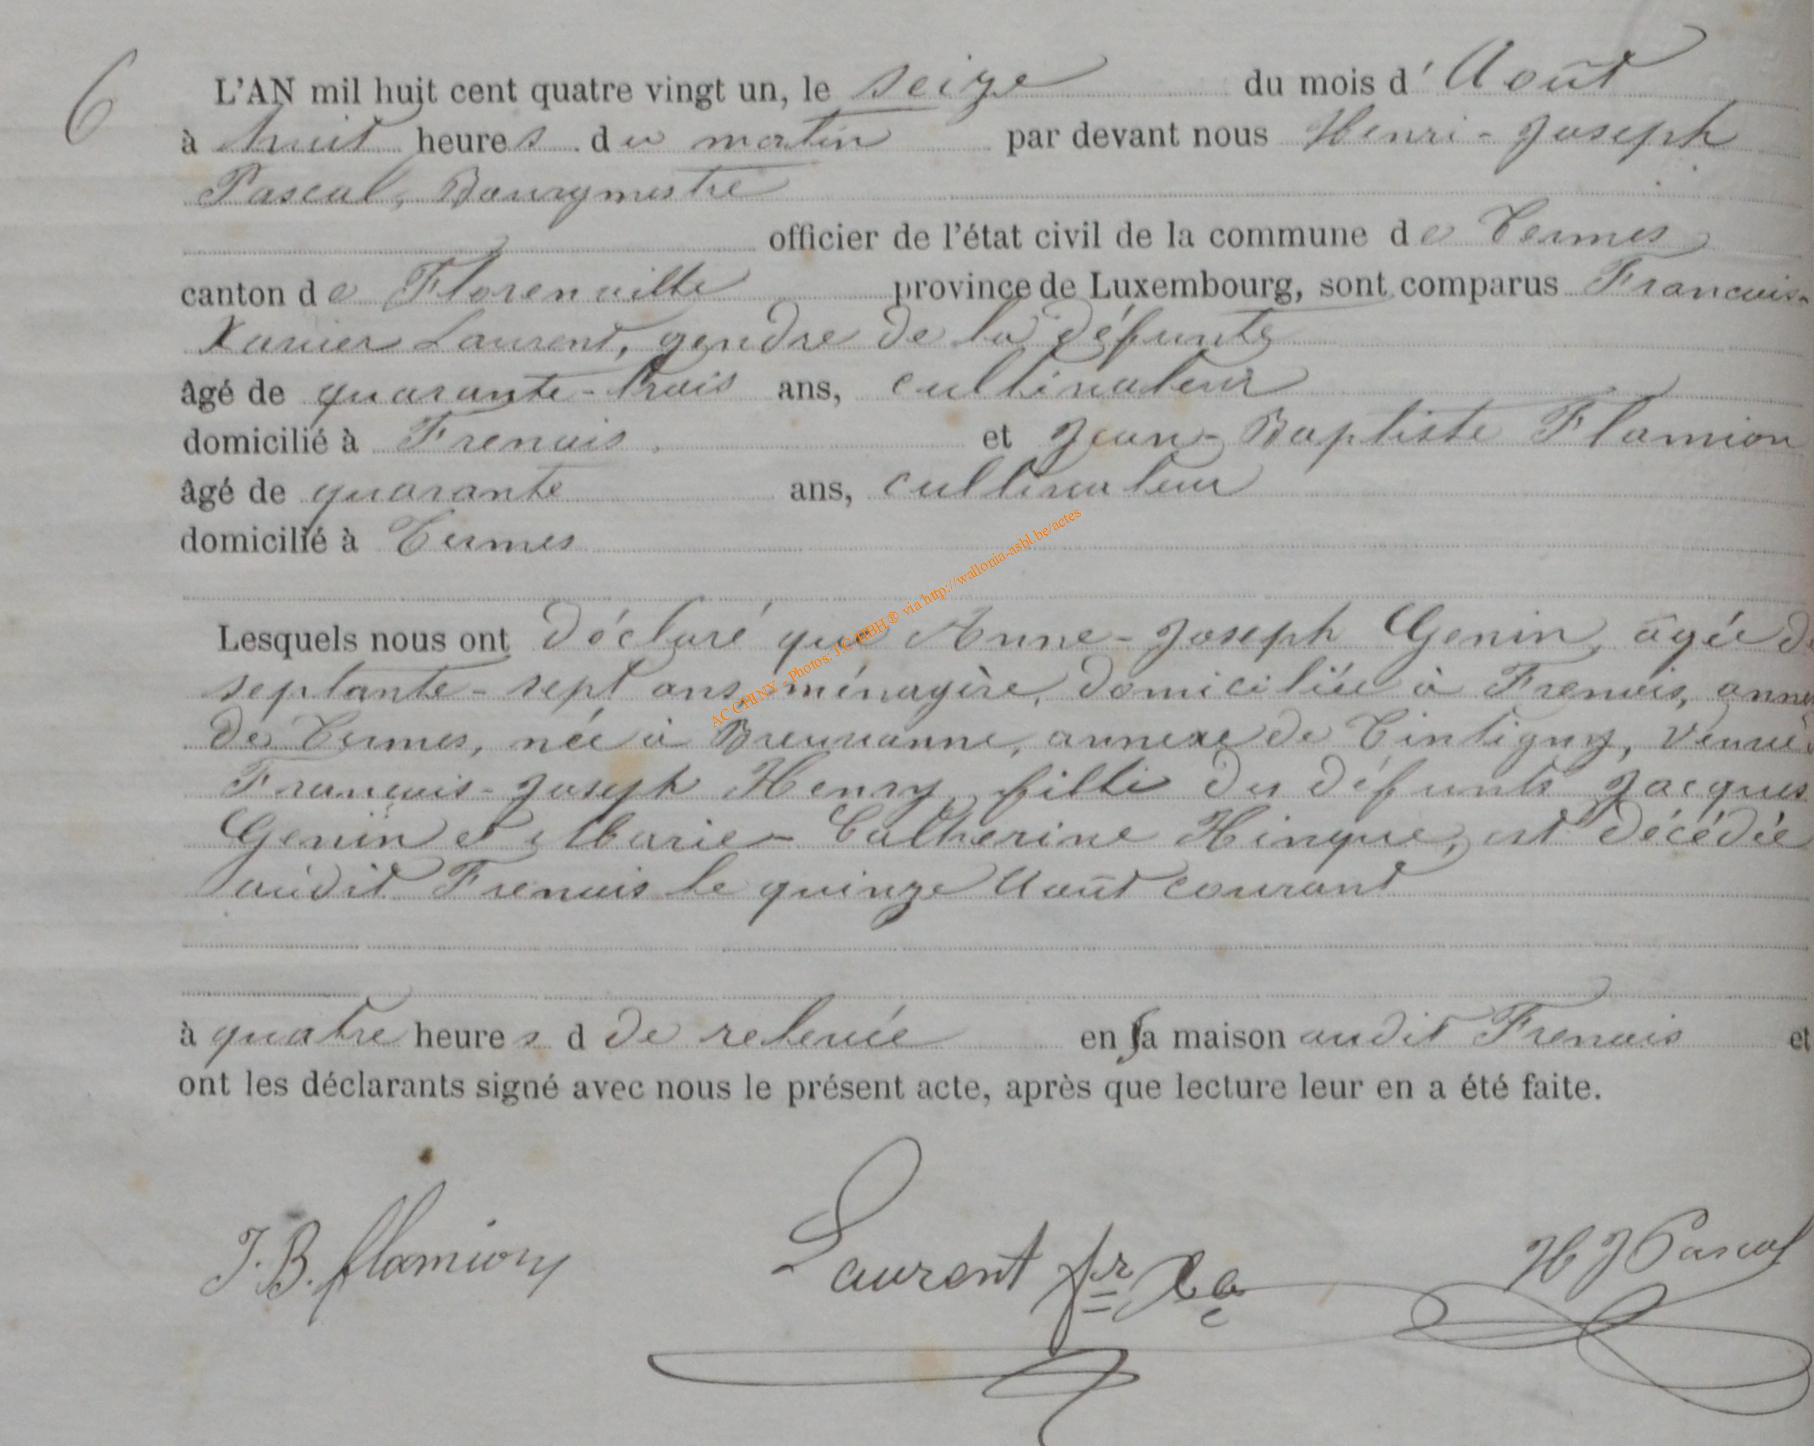 6
L'AN mil huit cent quatre vingt un, le seize du mois d' Août
à huit heures du matin par devant nous Henri-Joseph
Pascal, Bourgmestre
officier de l'état civil de la commune de Termes
canton de Florenville province de Luxembourg, sont comparus Francois-
Xavier Laurent, gendre de la défunte
âgé de quarante-trois ans, cultivateur
domicilié à Frenois. et Jean-Baptiste Flamion
âgé de quarante ans, cultivateur
domicilié à Termes
Lesquels nous ont déclaré que Anne-Joseph Genin, âgée de
septante-sept ans, ménagère, domiciliée à Frenois, annexe
de Termes, née à Breuvanne, annexe de Tintigny, veuve de
François-Joseph Henry, fille des défunts Jacques
Genin et Marie-Catherine Hinque, est décédée
audit Frenois le quinze Août courant
à quatre heures d de relevée en sa maison audit Frenois et
ont les déclarants signé avec nous le présent acte, après que lecture leur en a été faite.
J.B. flamion Laurent fr Xe H J Pascal
AC CHINY - Photos: J.C. via http://wallonia-asbl.be/actes